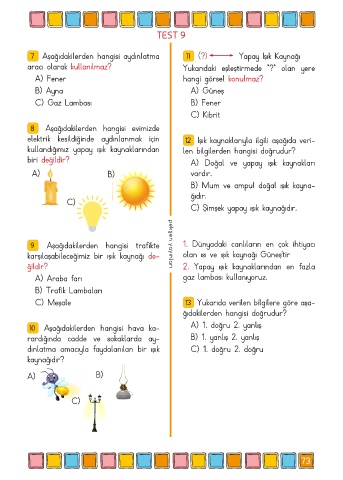 TEST 9
7 Aşağıdakilerden hangisi aydınlatma
aracı olarak kullanılmaz?
A) Fener
B) Ayna
C) Gaz Lambası
8 Aşağıdakilerden hangisi evimizde
elektrik kesildiğinde aydınlanmak için
kullandığımız yapay ışık kaynaklarından
biri değildir?
A)
B)
C)
9 Aşağıdakilerden hangisi trafikte
karşılaşabileceğimiz bir ışık kaynağı de-
ğildir?
A) Araba farı
B) Trafik Lambaları
C) Meşale
10 Aşağıdakilerden hangisi hava ka-
rardığında cadde ve sokaklarda ay-
dınlatma amacıyla faydalanılan bir ışık
kaynağıdır?
A)
B)
C)
pelikan yayınları
11 (?) Yapay Işık Kaynağı
Yukarıdaki eşleştirmede "?" olan yere
hangi görsel konulmaz?
A) Güneş
B) Fener
C) Kibrit
12 Işık kaynaklarıyla ilgili aşağıda veri-
len bilgilerden hangisi doğrudur?
A) Doğal ve yapay ışık kaynakları
vardır.
B) Mum ve ampul doğal ışık kayna-
ğıdır.
C) Şimşek yapay ışık kaynağıdır.
1. Dünyadaki canlıların en çok ihtiyacı
olan ısı ve ışık kaynağı Güneştir
2. Yapay ışık kaynaklarından en fazla
gaz lambası kullanıyoruz.
13 Yukarıda verilen bilgilere göre aşa-
ğıdakilerden hangisi doğrudur?
A) 1. doğru 2. yanlış
B) 1. yanlış 2. yanlış
C) 1. doğru 2. doğru
73